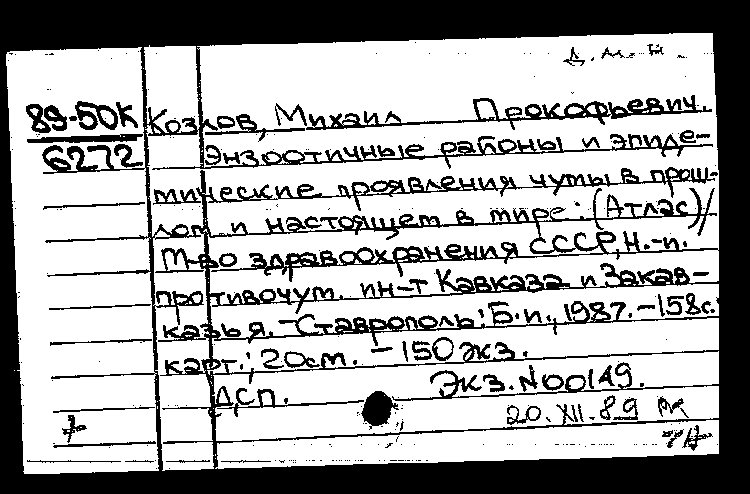 89-50К
6272
Козлов, Михаил Прокофьевич.
Энзоотичные районы и эпиде-
мические проявления чумы в прош-
лом и настоящем в мире: (Атлас)/
М-во здравоохранения СССР, Н.-и.
противочум. ин-т Кавказа и Закав-
казья. - Ставрополь: Б.и., 1987. - 158с.:
карт.; 20см. - 150 экз.
Дсп. Экз. N00149.
20.XII.89